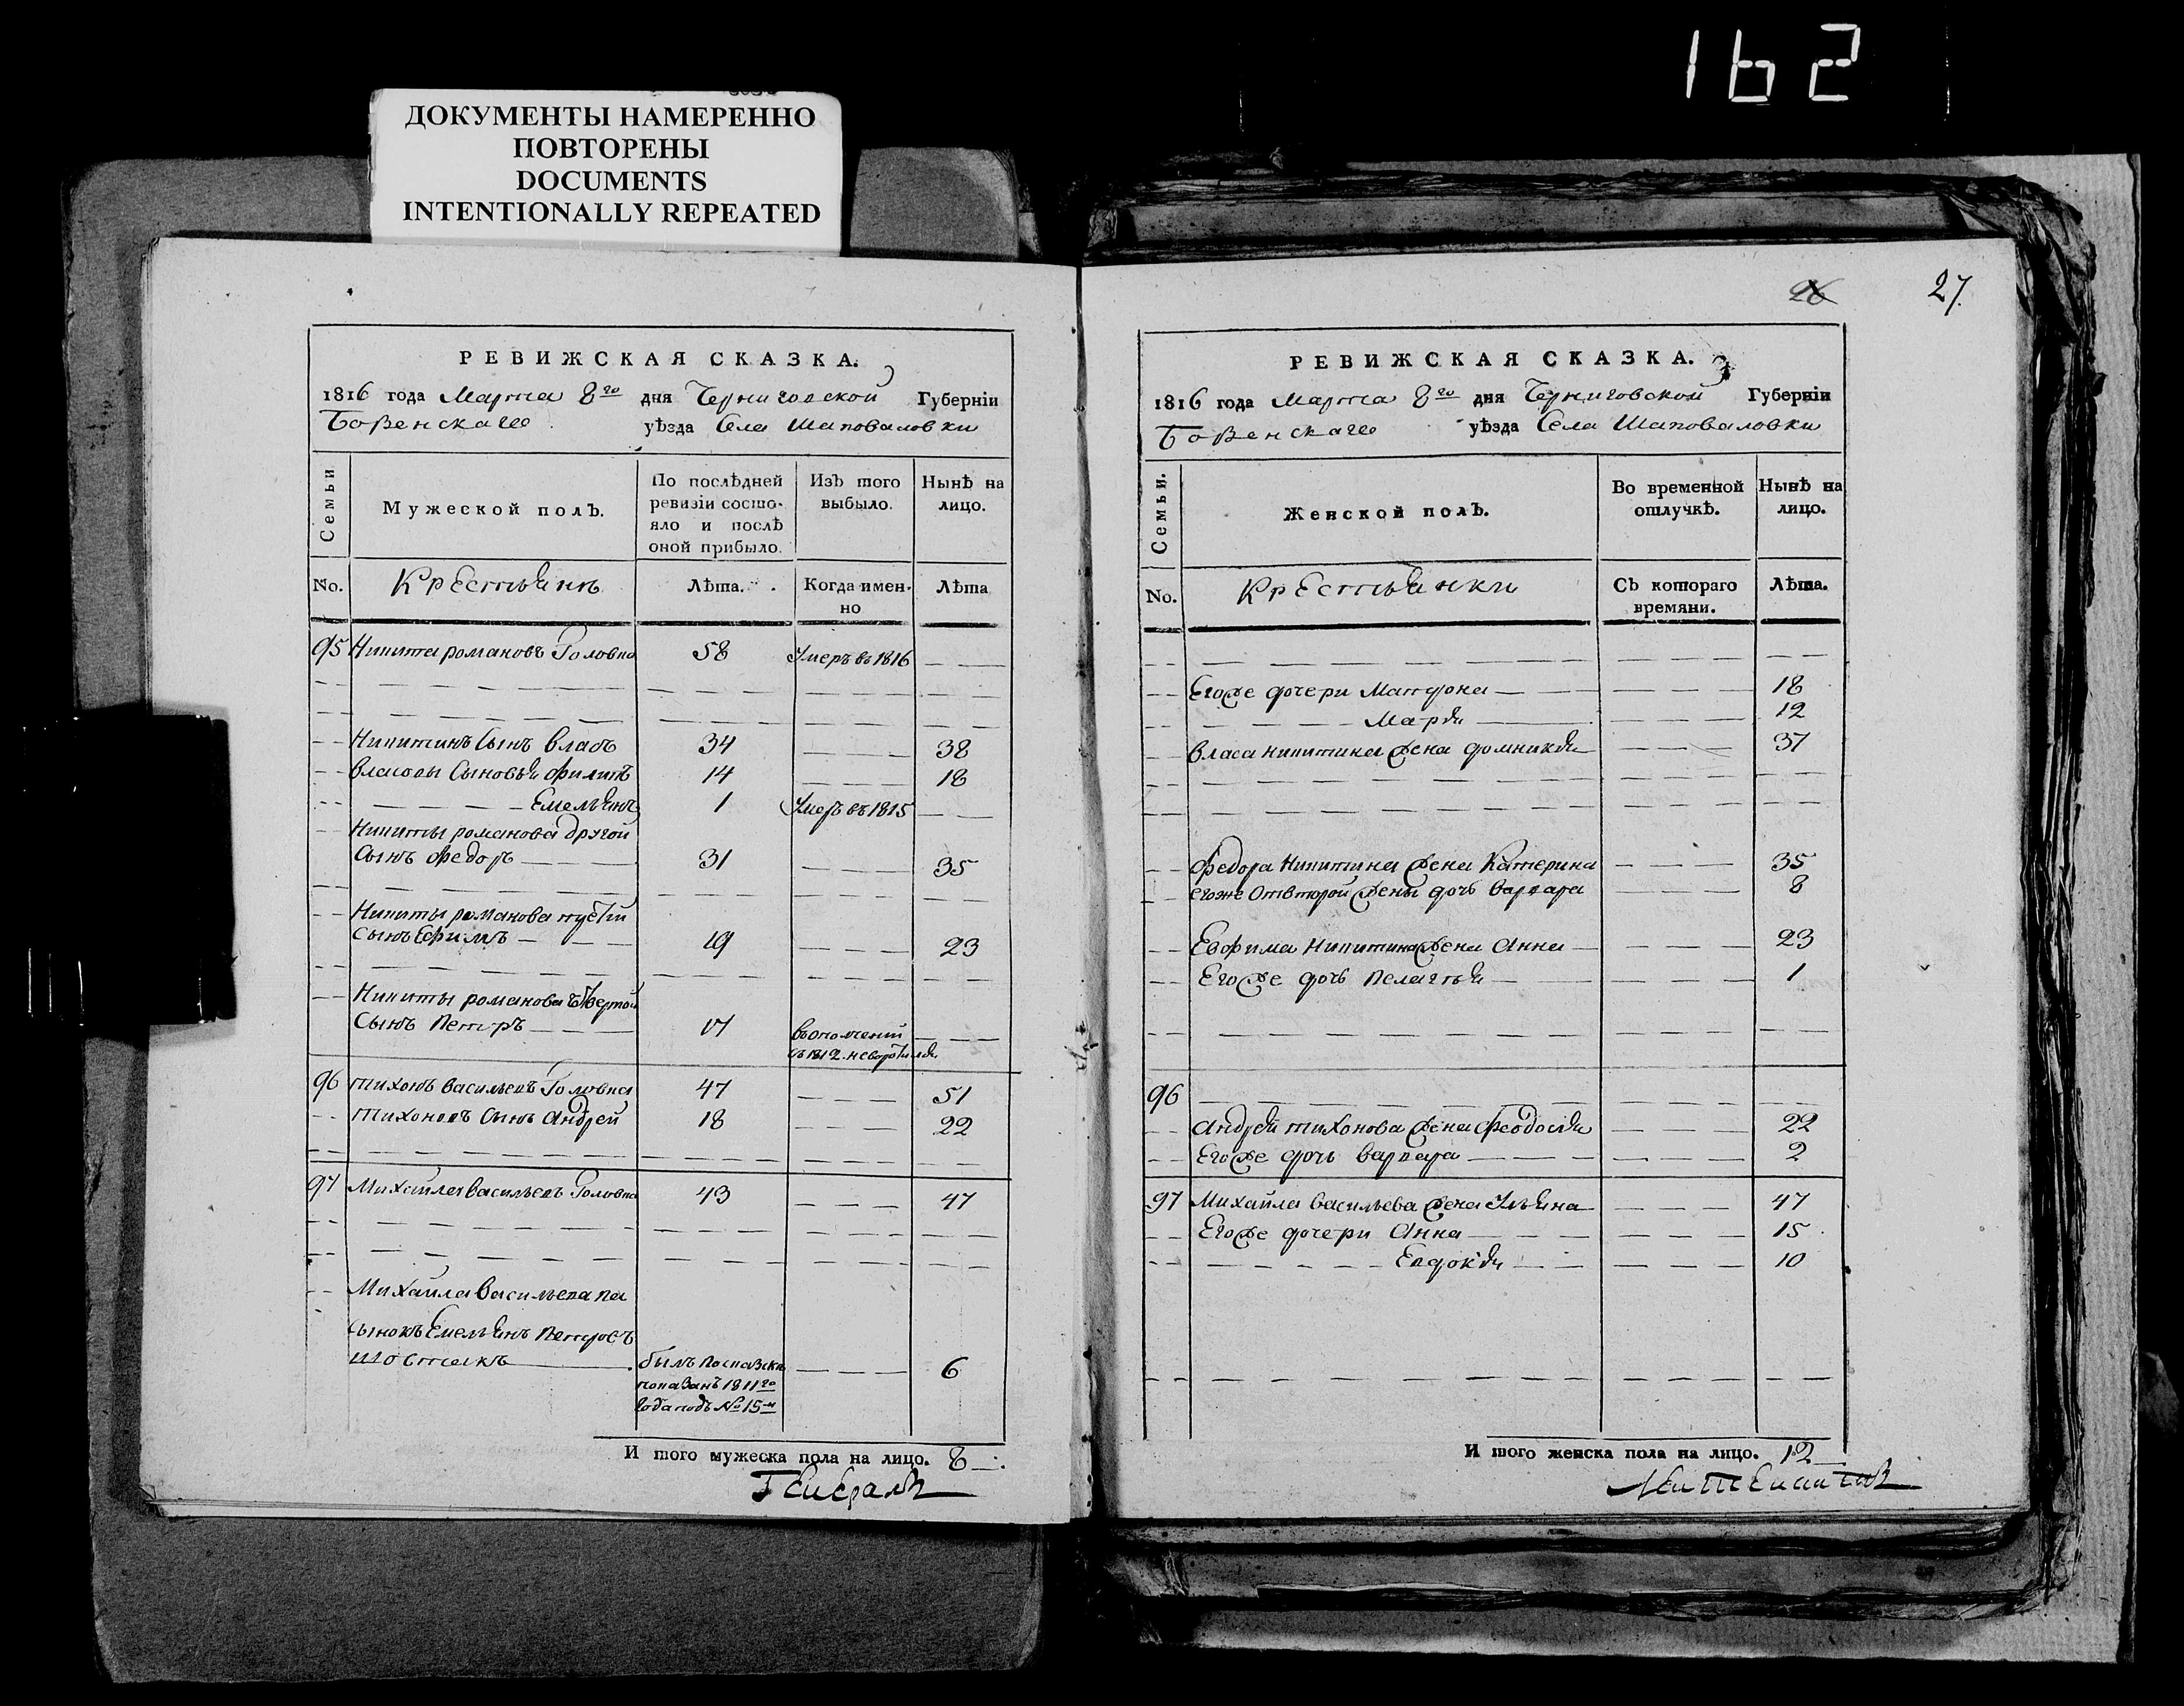 162
ДОКУМЕНТЫ НАМЕРЕННО
ПОВТОРЕНЫ
DOCUMENTS
INTENTIONALLY REPEATED
РЕВИЖСКАЯ СКАЗКА.
1816 года Марта 8го дня Черниговской Губерніи
Борзенскаго уѣзда Села Шаповаловки
Семьи
Мужеской полъ.
По послѣдней ревизіи состояло и послѣ оной прибыло.
Изъ того выбыло.
Нынѣ на лицо.
No. Крестьянъ Лѣта. Когда именно Лѣта
95 Никита романовъ Головна 58 Умеръ въ 1816
Никитинъ Сынъ Власъ 34 38
Власовы Сыновья Филипъ 14 18
Емельянъ 1 Умеръ въ 1815
Никиты романова другой
Сынъ Федоръ 31 35
Никиты романова третій
сынъ Ефимъ 19 23
Никиты романова четвертой
Сынъ Петръ 17 въ ополченіи
въ 1812. не воротился
96 Тихонъ васильевъ Головна 47 51
Тихоновъ Сынъ Андрей 18 22
97 Михайла васильевъ Головна 43 47
Михайла васильева па
сынокъ Емельянъ Петровъ
Шостакъ былъ по сказки 6
показанъ 1811го
года подъ № 15м
И того мужеска пола на лицо. 8
Генералъ
26 27.
РЕВИЖСКАЯ СКАЗКА.
1816 года Марта 8го дня Черниговской Губерніи
Борзенскаго уѣзда Села Шаповаловки
Семьи.
Женской полъ.
Во временной отлучкѣ.
Нынѣ на лицо.
No. Крестьянки Съ котораго времяни. Лѣта.
Егоже дочери Матрона 18
Марья 12
власа никитина жена домникія 37
Федора Никитина жена Катерина 35
егоже от второй жены дочь варвара 8
Евфима Никитина жена Анна 23
Егоже дочь Пелагья 1
96
Андрея тихонова жена Феодосия 22
Егоже дочь варвара 2
97 Михайла васильева жена Ульяна 47
Егоже дочери Анна 15
Евдокія 10
И того женска пола на лицо. 12